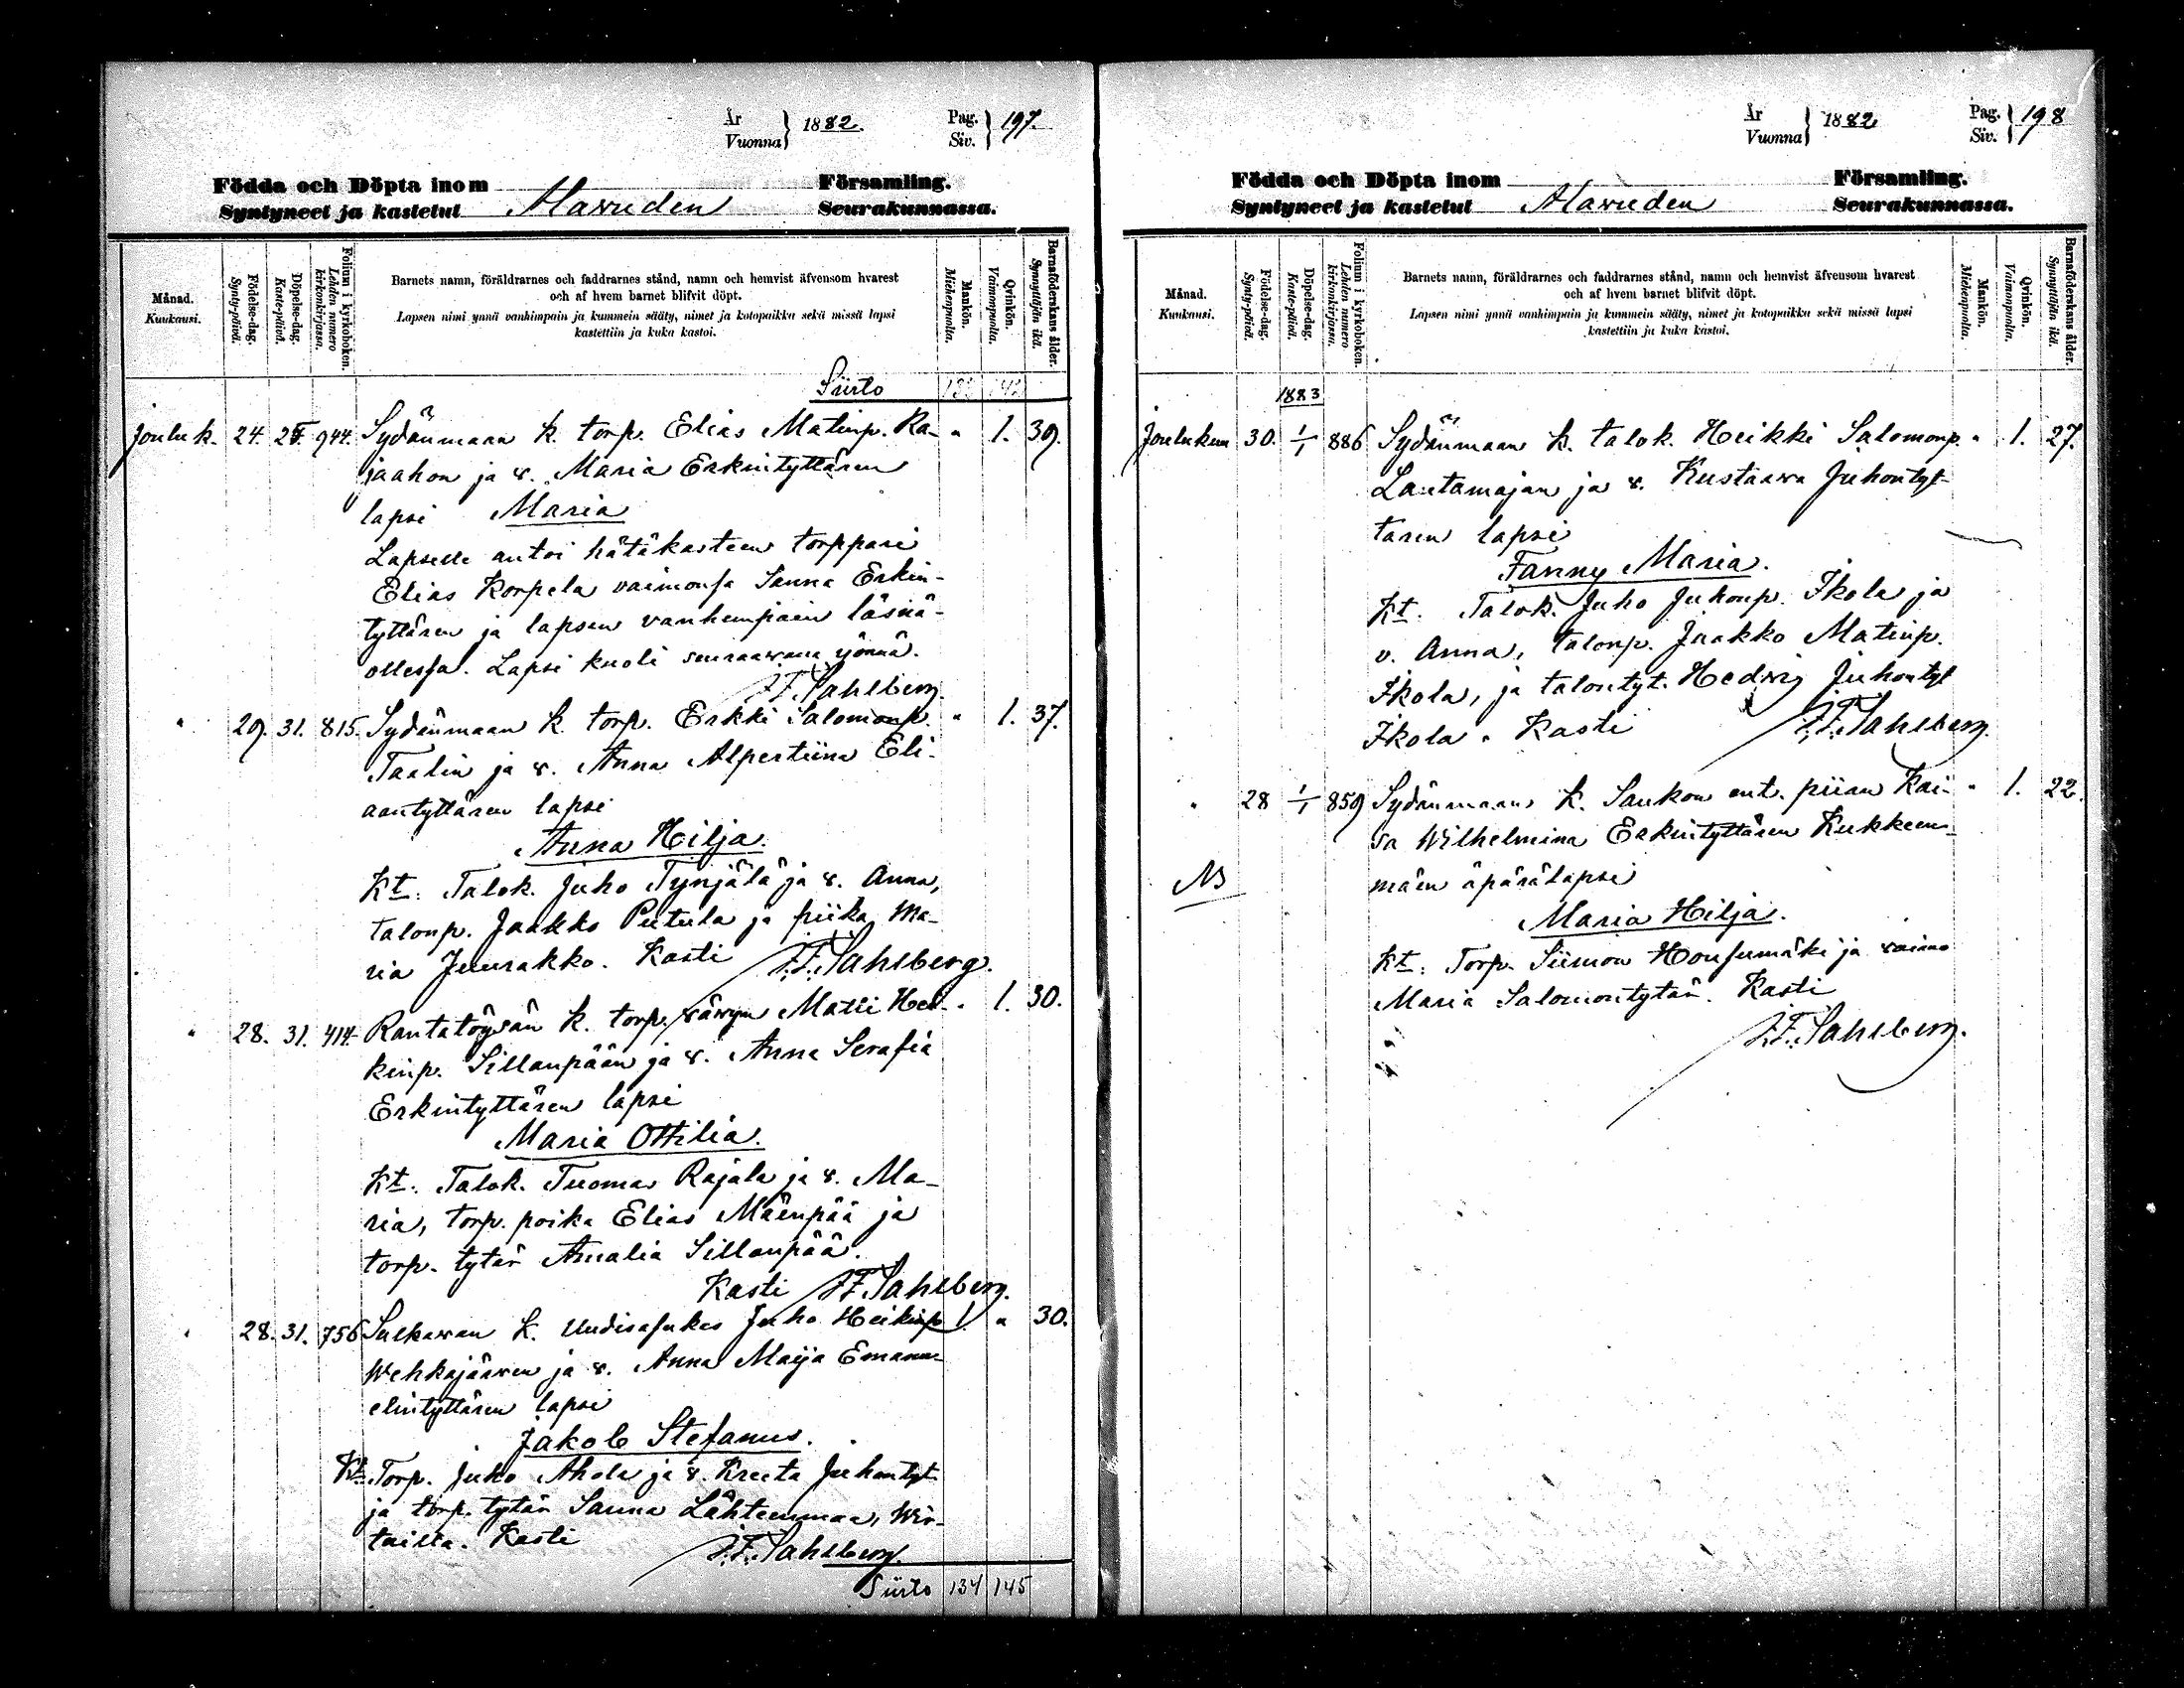 År
Vuonna } 1882. Pag.
Siv. } 197.
Födda och Döpta inom Församling.
Syntyneet ja kastetut Alavuden Seurakunnassa.
Månad.
Kuukausi.
Födelse-dag.
Synty-päivä.
Döpelse-dag.
Kaste-päivä.
Folium i kyrkoboken.
Lehden numero
kirkonkirjassa.
Barnets namn, föräldrarnes och faddrarnes stånd, namn och hemvist äfvensom hvarest
och af hvem barnet blifvit döpt.
Lapsen nimi ynnä vanhimpain ja kummein sääty, nimet ja kotopaikka sekä missä lapsi
kastettiin ja kuka kastoi.
Mankön.
Miehenpuolta.
Qvinkön.
Vaimonpuolta.
Barnaföderskans ålder.
Synnyttäjän ikä.
Siirto
Jouluk. 24. 25. 944. Sydänmaan k. torp. Elias Matinp. Ra- " 1. 39.
jaahon ja v. Maria Erkintyttären
lapsi Maria
Lapselle antoi hätäkasteen torppari
Elias Korpela vaimonsa Sanna Erkin-
tyttären ja lapsen vanhempain läsnä-
ollessa. Lapsi kuoli seuraavana yönnä.
J.F. Sahlberg.
" 29. 31. 815. Sydänmaan k. torp. Erkki Salomonp. " 1. 37.
Taalin ja v. Anna Alpertiina Eli-
aantyttären lapsi
Anna Hilja.
Kt: Talok. Juho Tynjälä ja v. Anna,
talonp. Jaakko Peetula ja piika Ma-
ria Juurakko. Kasti J.F. Sahlberg.
" 28. 31. 414. Rantatöysän k. torp. vävyn Matti Hei- " 1. 30.
kinp. Sillanpään ja v. Anna Serafia
Erkintyttären lapsi
Maria Ottilia.
Kt: Talok. Tuomas Rajala ja v. Ma-
ria, torp. poika Elias Mäenpää ja
torp. tytär Amalia Sillanpää.
Kasti J.F. Sahlberg.
" 28. 31. 756 Sulkavan k. Uudisasukas Juho Heikinp 1. " 30.
Wehkajärven ja v. Anna Maija Emanu-
elintyttären lapsi
Jakob Stefanus.
Kt: Torp. Juho Ahola ja v. Kreeta Juhontyt.
ja torp. tytär Sanna Lähteenmaa, Wir-
tailta. Kasti J.F. Sahlberg.
Siirto 134 145
År
Vuonna } 1882. Pag.
Siv. } 198
Födda och Döpta inom Församling.
Syntyneet ja kastetut Alavuden Seurakunnassa.
Månad.
Kuukausi.
Födelse-dag.
Synty-päivä.
Döpelse-dag.
Kaste-päivä.
Folium i kyrkoboken.
Lehden numero
kirkonkirjassa.
Barnets namn, föräldrarnes och faddrarnes stånd, namn och hemvist äfvensom hvarest
och af hvem barnet blifvit döpt.
Lapsen nimi ynnä vanhimpain ja kummein sääty, nimet ja kotopaikka sekä missä lapsi
kastettiin ja kuka kastoi.
Mankön.
Miehenpuolta.
Qvinkön.
Vaimonpuolta.
Barnaföderskans ålder.
Synnyttäjän ikä.
1883
Joulukuu 30. 1/1 886 Sydänmaan k. talok. Heikki Salomonp. " 1. 27.
Lautamajan ja v. Kustaava Juhontyt-
tären lapsi
Fanny Maria.
Kt. Talok. Juho Juhonp. Ikola ja
v. Anna, talonp. Jaakko Matinp.
Ikola, ja talontyt. Hedvig Juhontyt
Ikola. Kasti J.F. Sahlberg.
" 28 1/1 859 Sydänmaan k. Saukon ent. piian Kai- " 1. 22.
sa Wilhelmina Erkintyttären Kukkeen-
mäen äpärälapsi
NB
Maria Hilja.
Kt: Torp. Siimon Honsumäki ja vaimo
Maria Salomontytär. Kasti
J.F. Sahlberg.